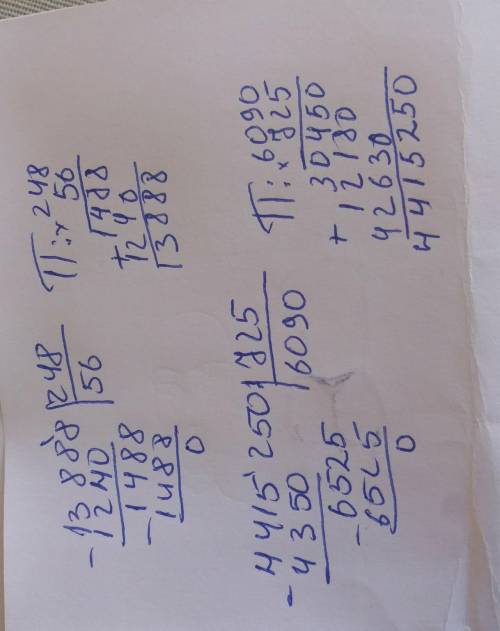 - 13888 248
1240 56
- 1488
1488
0
П: x 248
56
1488
+ 1240
13888
- 4415250 725
4350 6090
- 6525
6525
0
П: x 6090
725
30450
+ 12180
42630
4415250